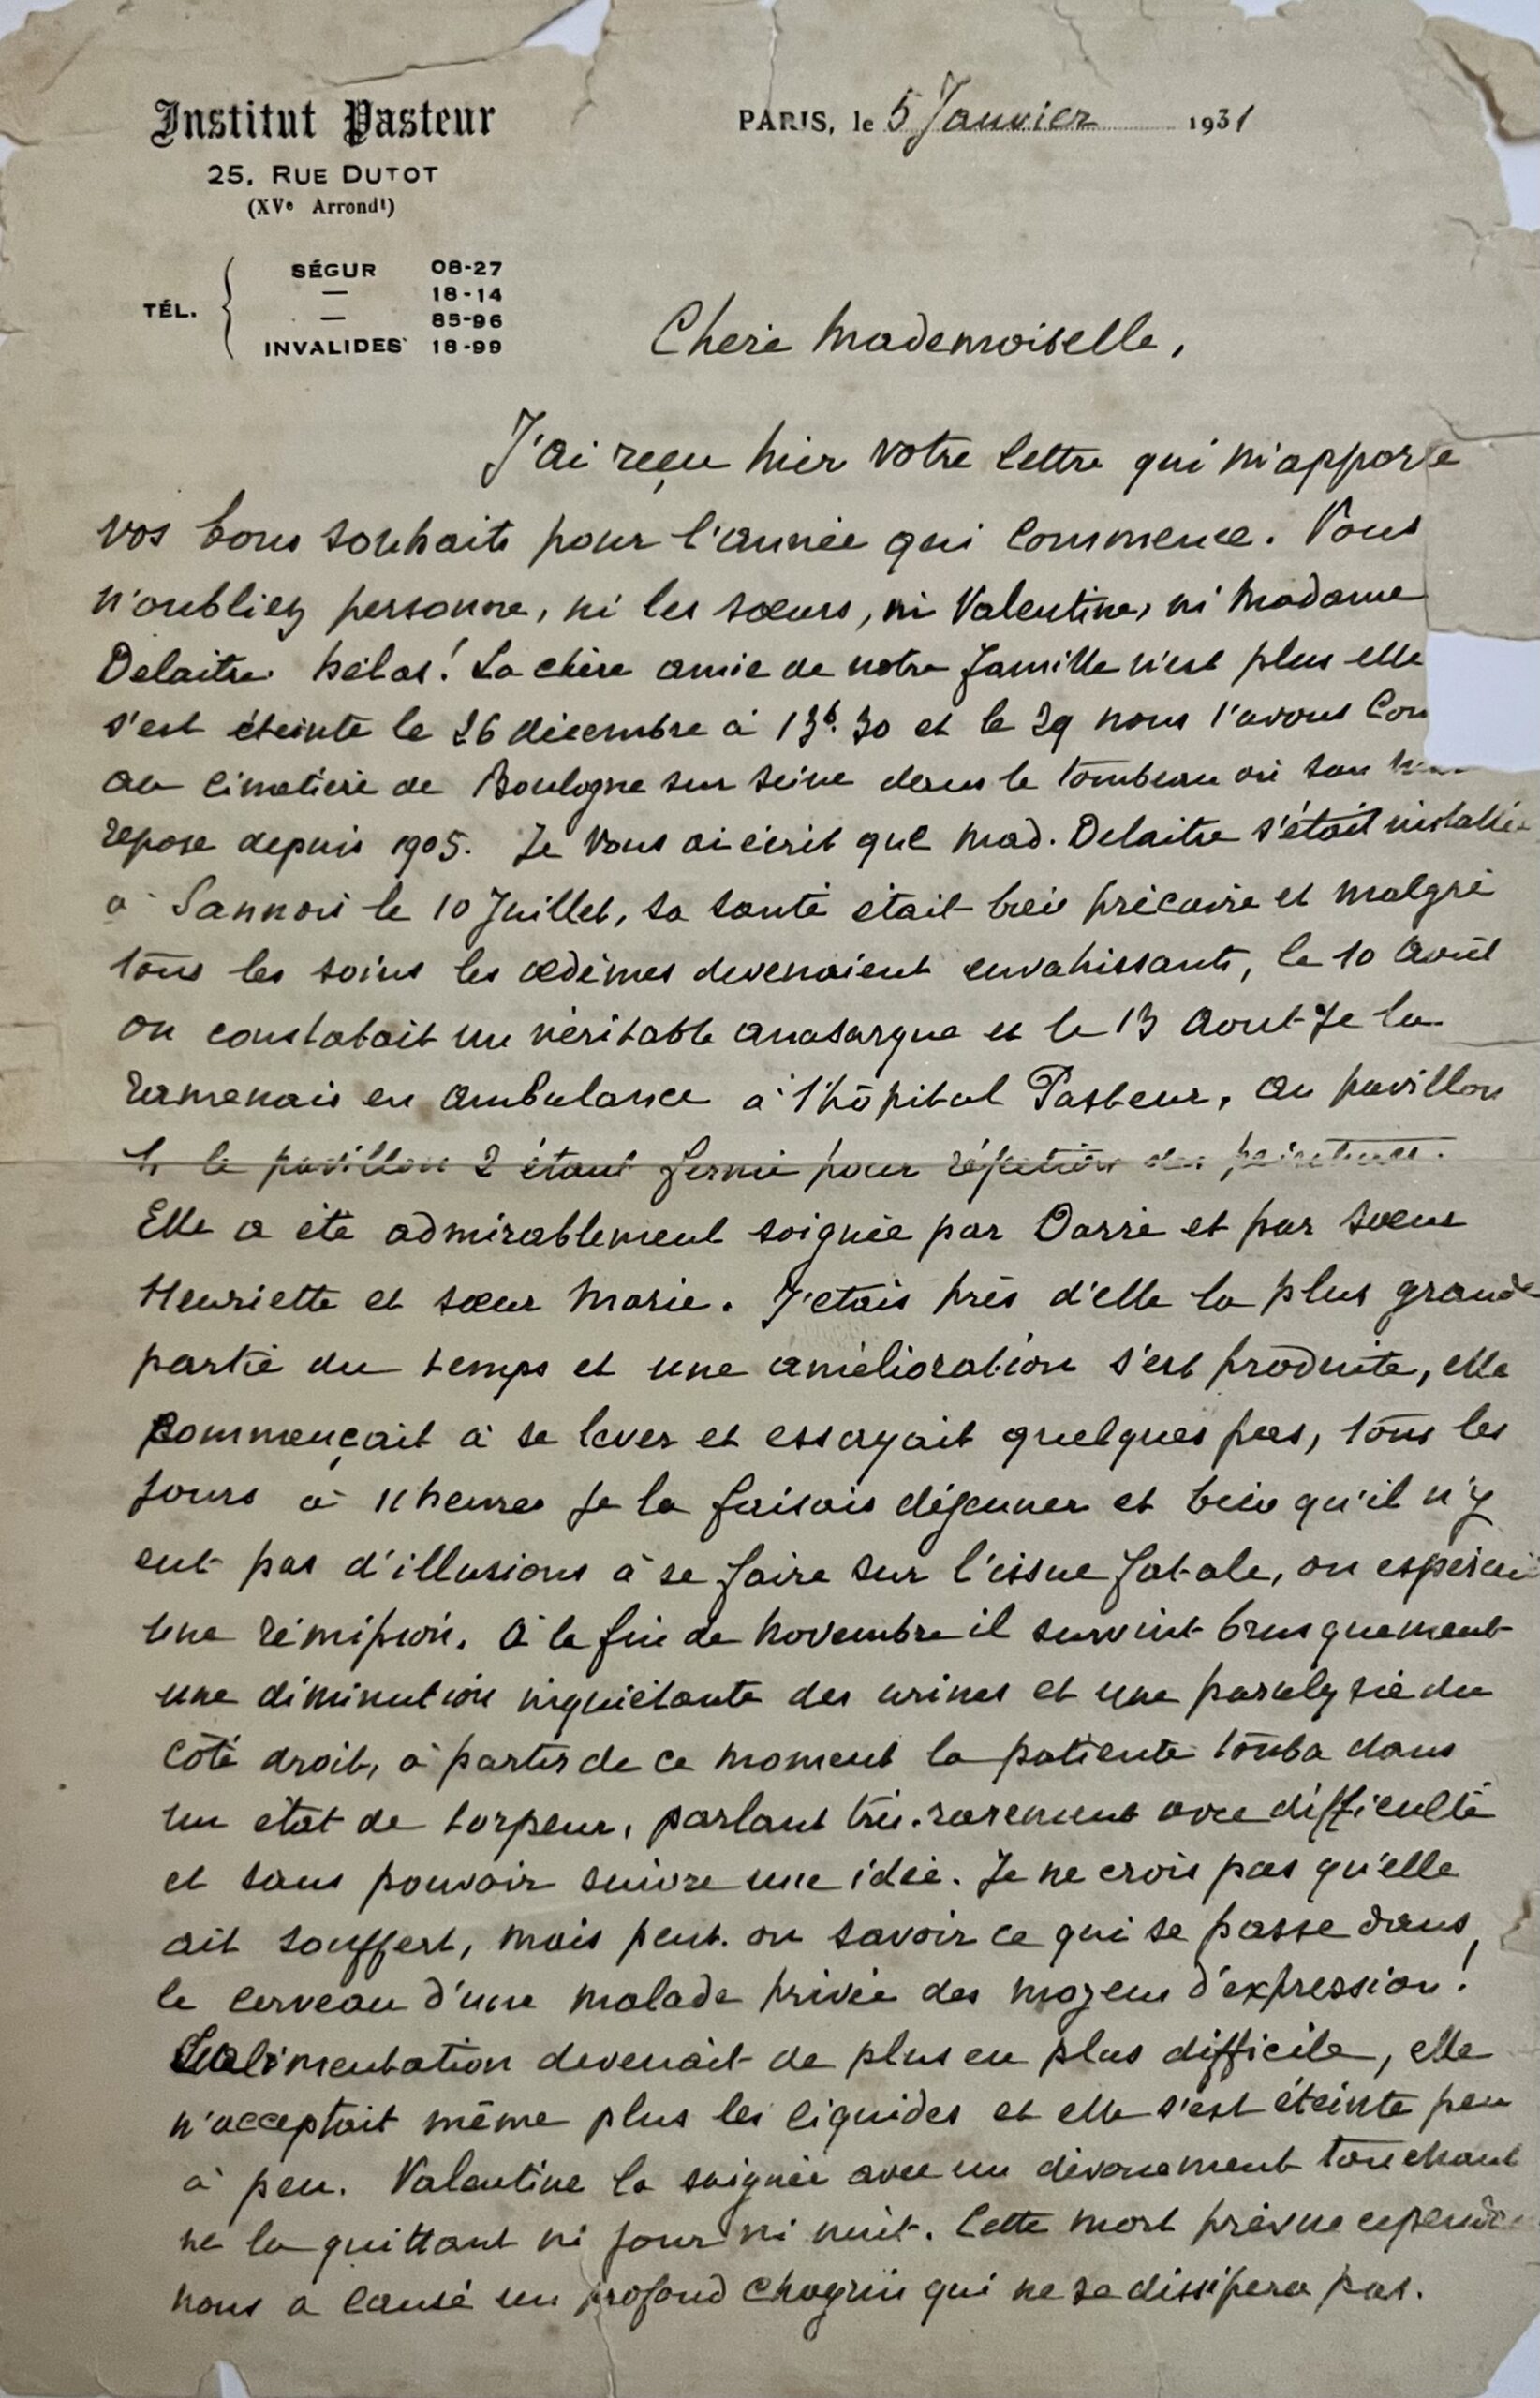 Institut Pasteur
25, RUE DUTOT
(XVe Arrondt)
PARIS, le 5 Janvier 1931
TÉL.
SÉGUR 08-27
— 18-14
— 85-96
INVALIDES 18-99
Chère Mademoiselle,
J'ai reçu hier votre lettre qui m'apporte
vos bons souhaits pour l'année qui commence. Vous
n'oubliez personne, ni les sœurs, ni Valentine, ni Madame
Delaitre hélas! La chère amie de notre famille n'est plus elle
s'est éteinte le 26 décembre à 13h.30 et le 29 nous l'avons con
au cimetière de Boulogne sur Seine dans le tombeau où son
repose depuis 1905. Je vous ai écrit que Mad. Delaitre s'était installée
à Sannois le 10 Juillet, sa santé était bien précaire et malgré
tous les soins les œdèmes devenaient envahissants, le 10 Août
on constatait un véritable anasarque et le 13 Aout Je la
ramenais en ambulance à l'hôpital Pasteur, au pavillon
le pavillon 2 étant fermé pour réfection des peintures.
Elle a été admirablement soignée par Darré et par sœur
Henriette et sœur Marie. J'étais près d'elle la plus grande
partie du temps et une amélioration s'est produite, elle
commençait à se lever et essayait quelques pas, tous les
jours à 11 heures Je la faisais déjeuner et bien qu'il n'y
eut pas d'illusions à se faire sur l'issue fatale, on espérait
une rémission. À la fin de Novembre il survint brusquement
une diminution inquiétante des urines et une paralysie du
côté droit, à partir de ce moment la patiente tomba dans
un état de torpeur, parlant très rarement avec difficulté
et sans pouvoir suivre une idée. Je ne crois pas qu'elle
ait souffert, mais peut-on savoir ce qui se passe dans
le cerveau d'une malade privée des moyens d'expression!
L'alimentation devenait de plus en plus difficile, elle
n'acceptait même plus les liquides et elle s'est éteinte peu
à peu. Valentine la soignée avec un dévouement touchant
ne la quittant ni jour ni nuit. Cette mort prévue cependant
nous a causé un profond chagrin qui ne se dissipera pas.